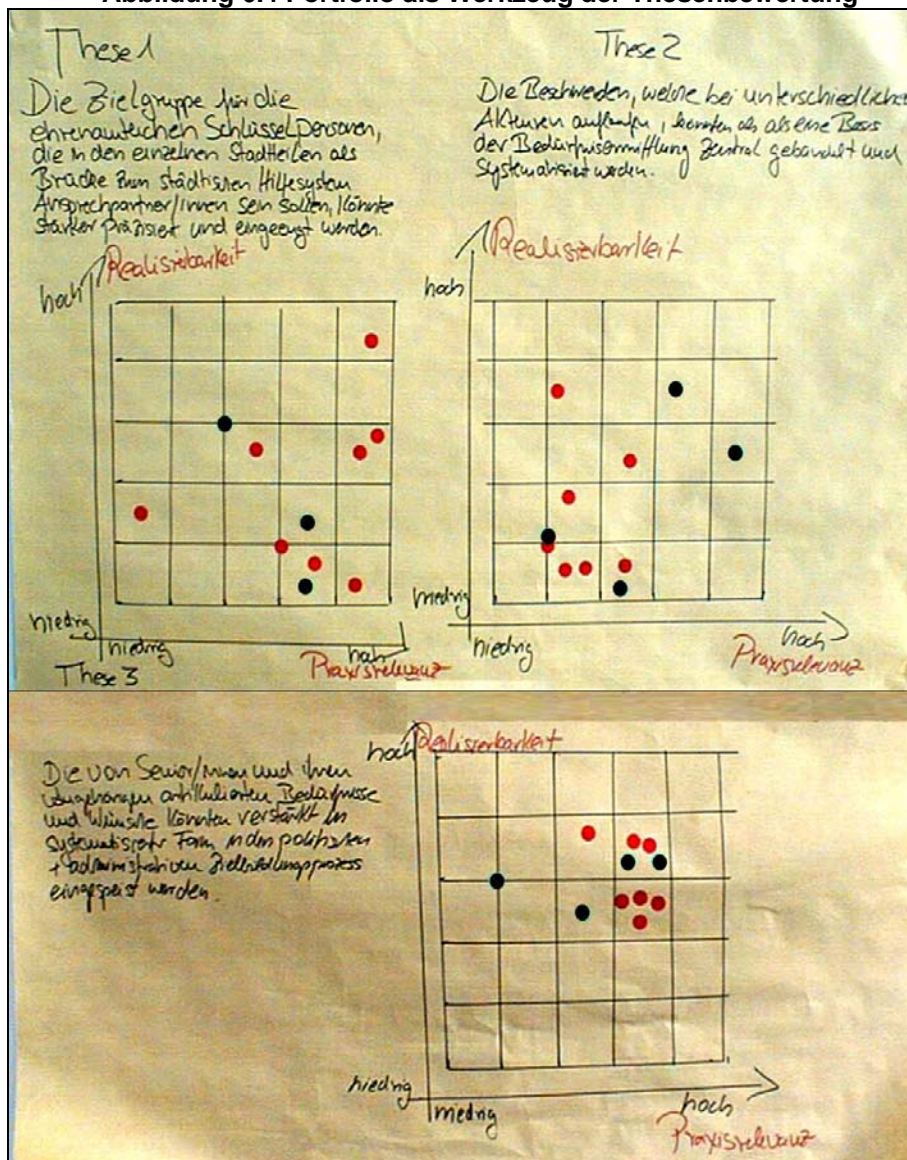 These 1
Die Zielgruppe für die
ehrenamtlichen Schlüsselpersonen,
die in den einzelnen Stadtteilen als
Brücke zum städtischen Hilfesystem
Ansprechpartner/innen sein sollen, könnte
stärker präzisiert und eingeengt werden.
Realisierbarkeit
hoch
niedrig
niedrig
hoch
Praxisrelevanz
These 2
Die Beschwerden, welche bei unterschiedlichen
Akteuren auflaufen, könnten als eine Basis
der Bedürfnisermittlung zentral gebündelt und
systematisiert werden.
Realisierbarkeit
hoch
niedrig
niedrig
hoch
Praxisrelevanz
These 3
Die von Senior/innen und ihren
artikulierten Bedürfnisse
und Wünsche könnten verstärkt in
systematisierter Form in den politischen
+ administrativen Zielbildungsprozess
eingespeist werden.
Realisierbarkeit
hoch
niedrig
niedrig
hoch
Praxisrelevanz